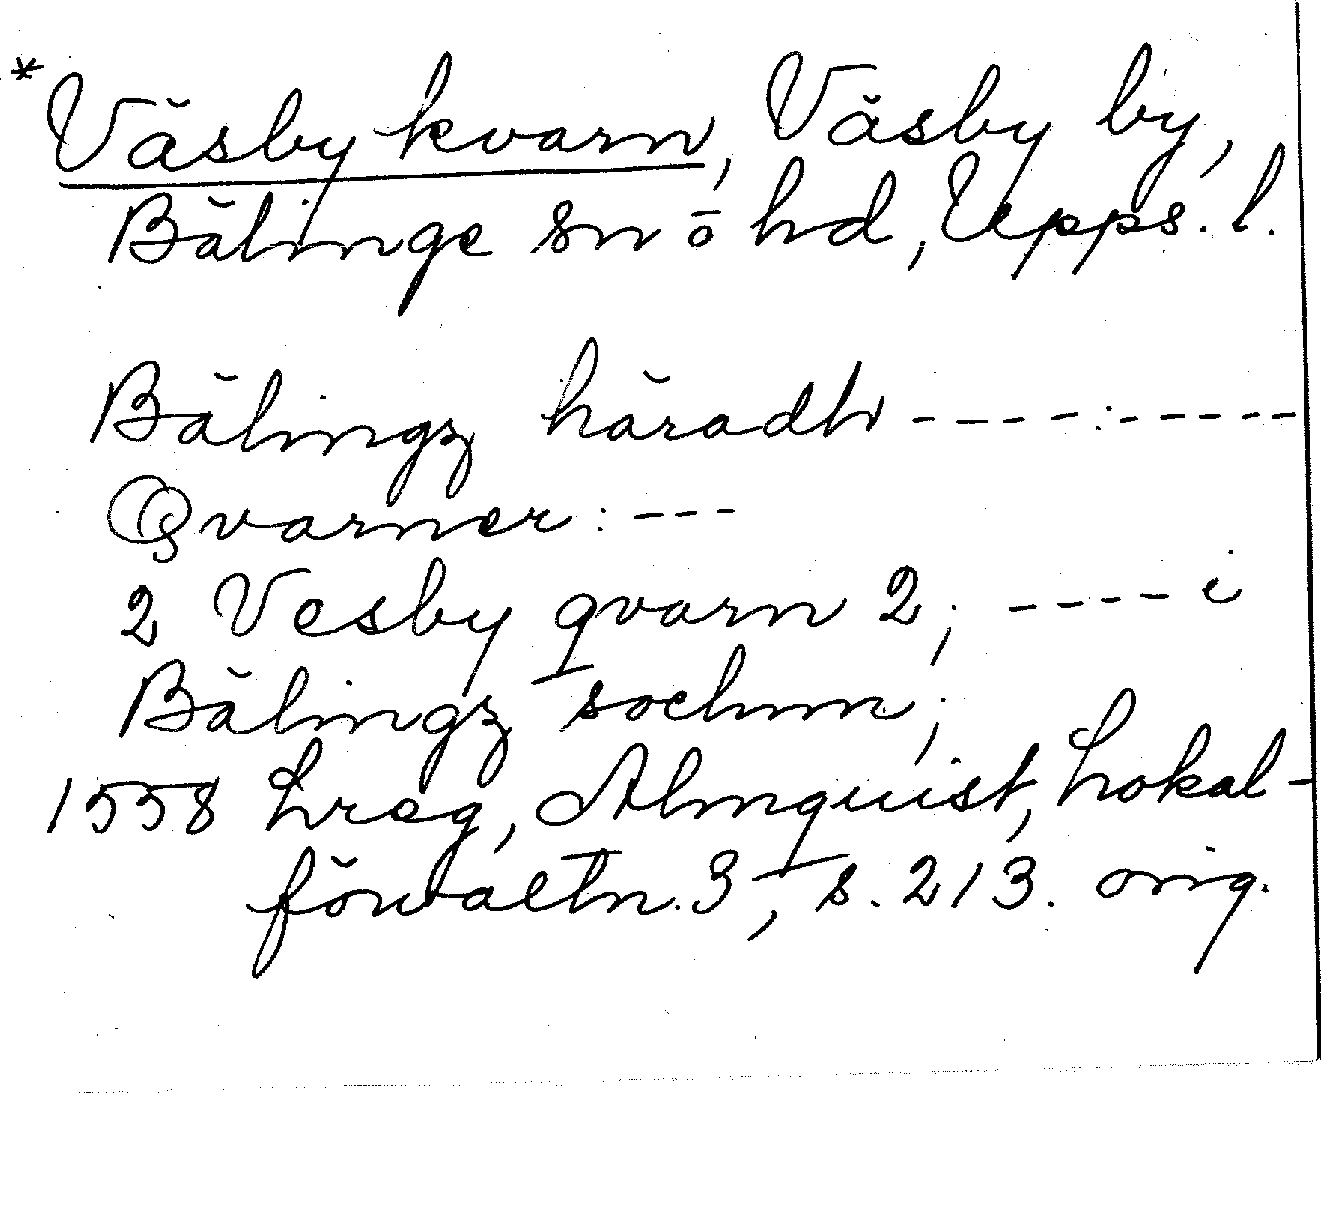 *Väsby kvarn, Väsby by,
Bälinge sn o hd, Upps. l.
Bälingz häradh - - - - : - - - - -
Qvarner: - - -
2 Vesby qvarn 2; - - - - i
Bälingz sochnn;
1558 Lreg, Almquist, Lokal-
förvaltn. 3, s. 213. orig.